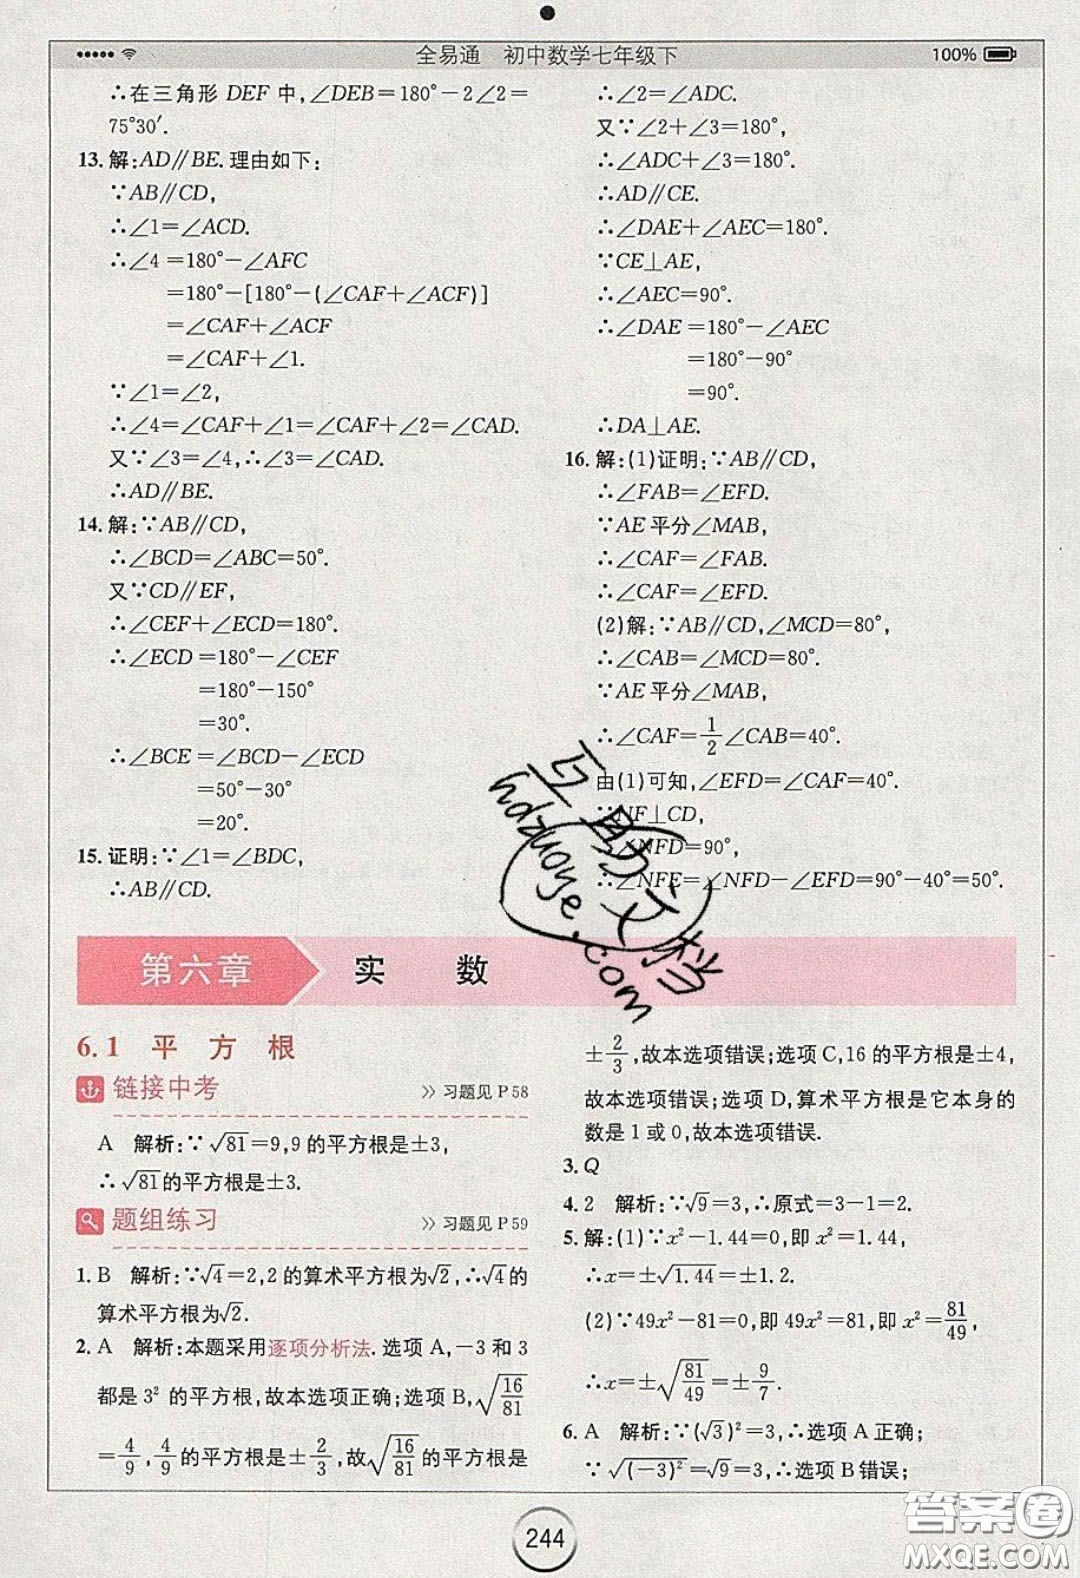 全易通　初中数学七年级下
100%
∴在三角形 DEF 中,∠DEB=180°-2∠2=
75°30′.
13. 解:AD∥BE. 理由如下:
∵AB∥CD,
∴∠1=∠ACD.
∴∠4 =180°-∠AFC
=180°-[180°-(∠CAF+∠ACF)]
=∠CAF+∠ACF
=∠CAF+∠1.
∵∠1=∠2,
∴∠4=∠CAF+∠1=∠CAF+∠2=∠CAD.
又∵∠3=∠4,∴∠3=∠CAD.
∴AD∥BE.
14. 解:∵AB∥CD,
∴∠BCD=∠ABC=50°.
又∵CD∥EF,
∴∠CEF+∠ECD=180°.
∴∠ECD =180°-∠CEF
=180°-150°
=30°.
∴∠BCE =∠BCD-∠ECD
=50°-30°
=20°.
15. 证明:∵∠1=∠BDC,
∴AB∥CD.
∴∠2=∠ADC.
又∵∠2+∠3=180°,
∴∠ADC+∠3=180°.
∴AD∥CE.
∴∠DAE+∠AEC=180°.
∵CE⊥AE,
∴∠AEC=90°.
∴∠DAE =180°-∠AEC
=180°-90°
=90°.
∴DA⊥AE.
16. 解:(1)证明:∵AB∥CD,
∴∠FAB=∠EFD.
∵AE 平分∠MAB,
∴∠CAF=∠FAB.
∴∠CAF=∠EFD.
(2)解:∵AB∥CD,∠MCD=80°,
∴∠CAB=∠MCD=80°.
∵AE 平分∠MAB,
∴∠CAF=1/2∠CAB=40°.
由(1)可知,∠EFD=∠CAF=40°.
∵NF⊥CD,
∴∠NFD=90°,
∴∠NFE=∠NFD-∠EFD=90°-40°=50°.
互助文档
hdzuoye.com
第六章　实　数
6.1　平　方　根
链接中考　》习题见 P58
A　解析:∵√81=9,9 的平方根是±3,
∴√81的平方根是±3.
题组练习　》习题见 P59
1. B　解析:∵√4=2,2 的算术平方根为√2,∴√4的
算术平方根为√2.
2. A　解析:本题采用逐项分析法. 选项 A,-3 和 3
都是 3² 的平方根,故本选项正确;选项 B,√(16/81)
=4/9,4/9的平方根是±2/3,故√(16/81)的平方根是
±2/3,故本选项错误;选项 C,16 的平方根是±4,
故本选项错误;选项 D,算术平方根是它本身的
数是 1 或 0,故本选项错误.
3. Q
4. 2　解析:∵√9=3,∴原式=3-1=2.
5. 解:(1)∵x²-1.44=0,即 x²=1.44,
∴x=±√1.44=±1.2.
(2)∵49x²-81=0,即 49x²=81,即 x²=81/49,
∴x=±√(81/49)=±9/7.
6. A　解析:∵(√3)²=3,∴选项 A 正确;
∵√(-3)²=√9=3,∴选项 B 错误;
244
答案圈
MXQE.COM